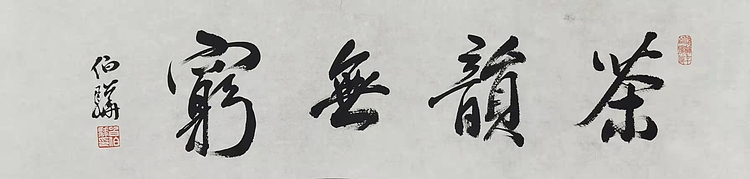 茶韻無窮
伯驊